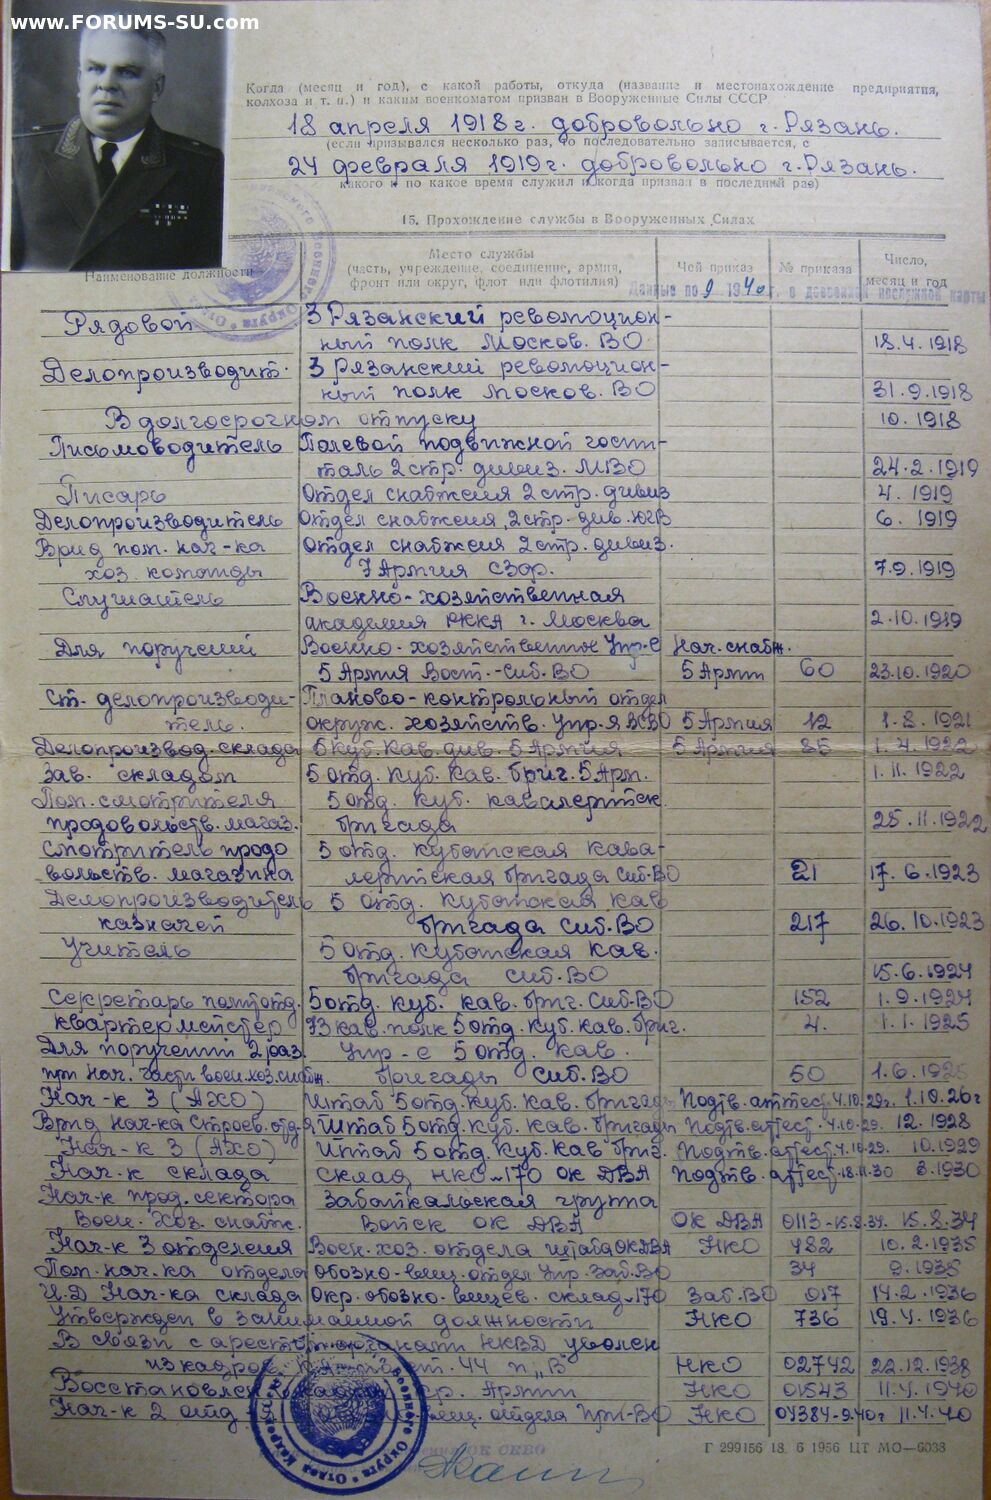 www.FORUMS-SU.com
Когда (месяц и год), с какой работы, откуда (название и местонахождение предприятия,
колхоза и т. п.) и каким военкоматом призван в Вооруженные Силы СССР
18 апреля 1918 г. добровольно г. Рязань.
(если призывался несколько раз, то последовательно записывается, с
24 февраля 1919 г. добровольно г. Рязань.
какого и по какое время служил и когда призван в последний раз)
15. Прохождение службы в Вооруженных Силах
Наименование должности Место службы (часть, учреждение, соединение, армия, фронт или округ, флот или флотилия) Чей приказ № приказа Число, месяц и год
Данные по 9 1940 г. о послужной карты
Рядовой 3 Рязанский революцион-
ный полк Москов. ВО 18.4.1918
Делопроизводит. 3 Рязанский революцион-
ный полк Москов. ВО 31.9.1918
В долгосрочном отпуску 10.1918
Письмоводитель Полевой подвижной госпи-
таль 2 стр. дивиз. МВО 24.2.1919
Писарь Отдел снабжения 2 стр. дивиз 4.1919
Делопроизводитель Отдел снабжения 2 стр. див. 6.1919
Врид пом. нач-ка Отдел снабжения 2 стр. дивиз.
хоз. команды 7 Армия 7.9.1919
Слушатель Военно-хозяйственная
академия РККА г. Москва 2.10.1919
Для поручений Военно-хозяйственное Упр-е Нач. снабж.
5 Армия Вост.-Сиб. ВО 5 Армии 60 23.10.1920
Ст. делопроизводи- Планово-контрольный отдел
тель. окруж. хозяйств. Упр-я ВСВО 5 Армия 12 1.8.1921
Делопроизвод. склада 5 Куб. Кав. див. 5 Армия 5 Армия 85 1.4.1922
Зав. складом 5 отд. Куб. Кав. бриг. 5 Арм. 1.11.1922
Пом. смотрителя 5 отд. Куб. кавалерийск.
продовольств. магаз. бригада 25.11.1922
Смотритель продо 5 отд. Кубанская кава-
вольств. магазина лерийская бригада Сиб. ВО 21 17.6.1923
Делопроизводитель 5 отд. Кубанская кав
казначей бригада Сиб. ВО 217 26.10.1923
Учитель 5 отд. Кубанская кав.
бригада Сиб. ВО 15.6.1924
Секретарь политотд. 5 отд. Куб. кав. бриг. Сиб. ВО 152 1.9.1924
Квартермейстер 73 кав. полк 5 отд. Куб. кав. бриг. 4. 1.1.1925
Для поручений 2 раз. Упр-е 5 отд. кав.
при нач. части воен. хоз. снабж. бригады Сиб. ВО 50 1.6.1925
Нач-к 3 (АХО) Штаб 5 отд. Куб. кав. бригады Подтв. аттест. 4.10.29г. 1.10.26г
Врид нач-ка Строев. отд-я Штаб 5 отд. Куб. кав. бригады Подтв. аттест. 4.10.29. 12.1928
Нач-к 3 (АХО) Штаб 5 отд. Куб. кав бриг. Подтв. аттест. 4.10.29. 10.1929
Нач-к склада Склад НКО-170 ОК ДВА Подтв. аттест. 18.11.30 8.1930
Нач-к прод. сектора Забайкальская группа
Воен. Хоз. снабж. Войск ОК ДВА ОК ДВА 0113-15.8.34. 15.8.34
Нач-к 3 отделения Воен. хоз. отдела штаба ОКДВА НКО 482 10.2.1935
Пом. нач-ка отдела Обозно-вещ. отдел Упр. Заб. ВО 34 9.1935
И.Д. Нач-ка склада Окр. обозно-вещев. склад-170 Заб. ВО 017 14.2.1936
Утвержден в занимаемой должности НКО 736 19.4.1936
В связи с арестом органами НКВД уволен
из кадров ст. 44 п. „В" НКО 02742 22.12.1938
Восстановлен Армии НКО 01543 11.4.1940
Нач-к 2 отд вещ. отдела При-ВО НКО 04384-9.40г 11.4.40
ОК СКВО
Г 299156 18. 6 1956 ЦТ МО—6038